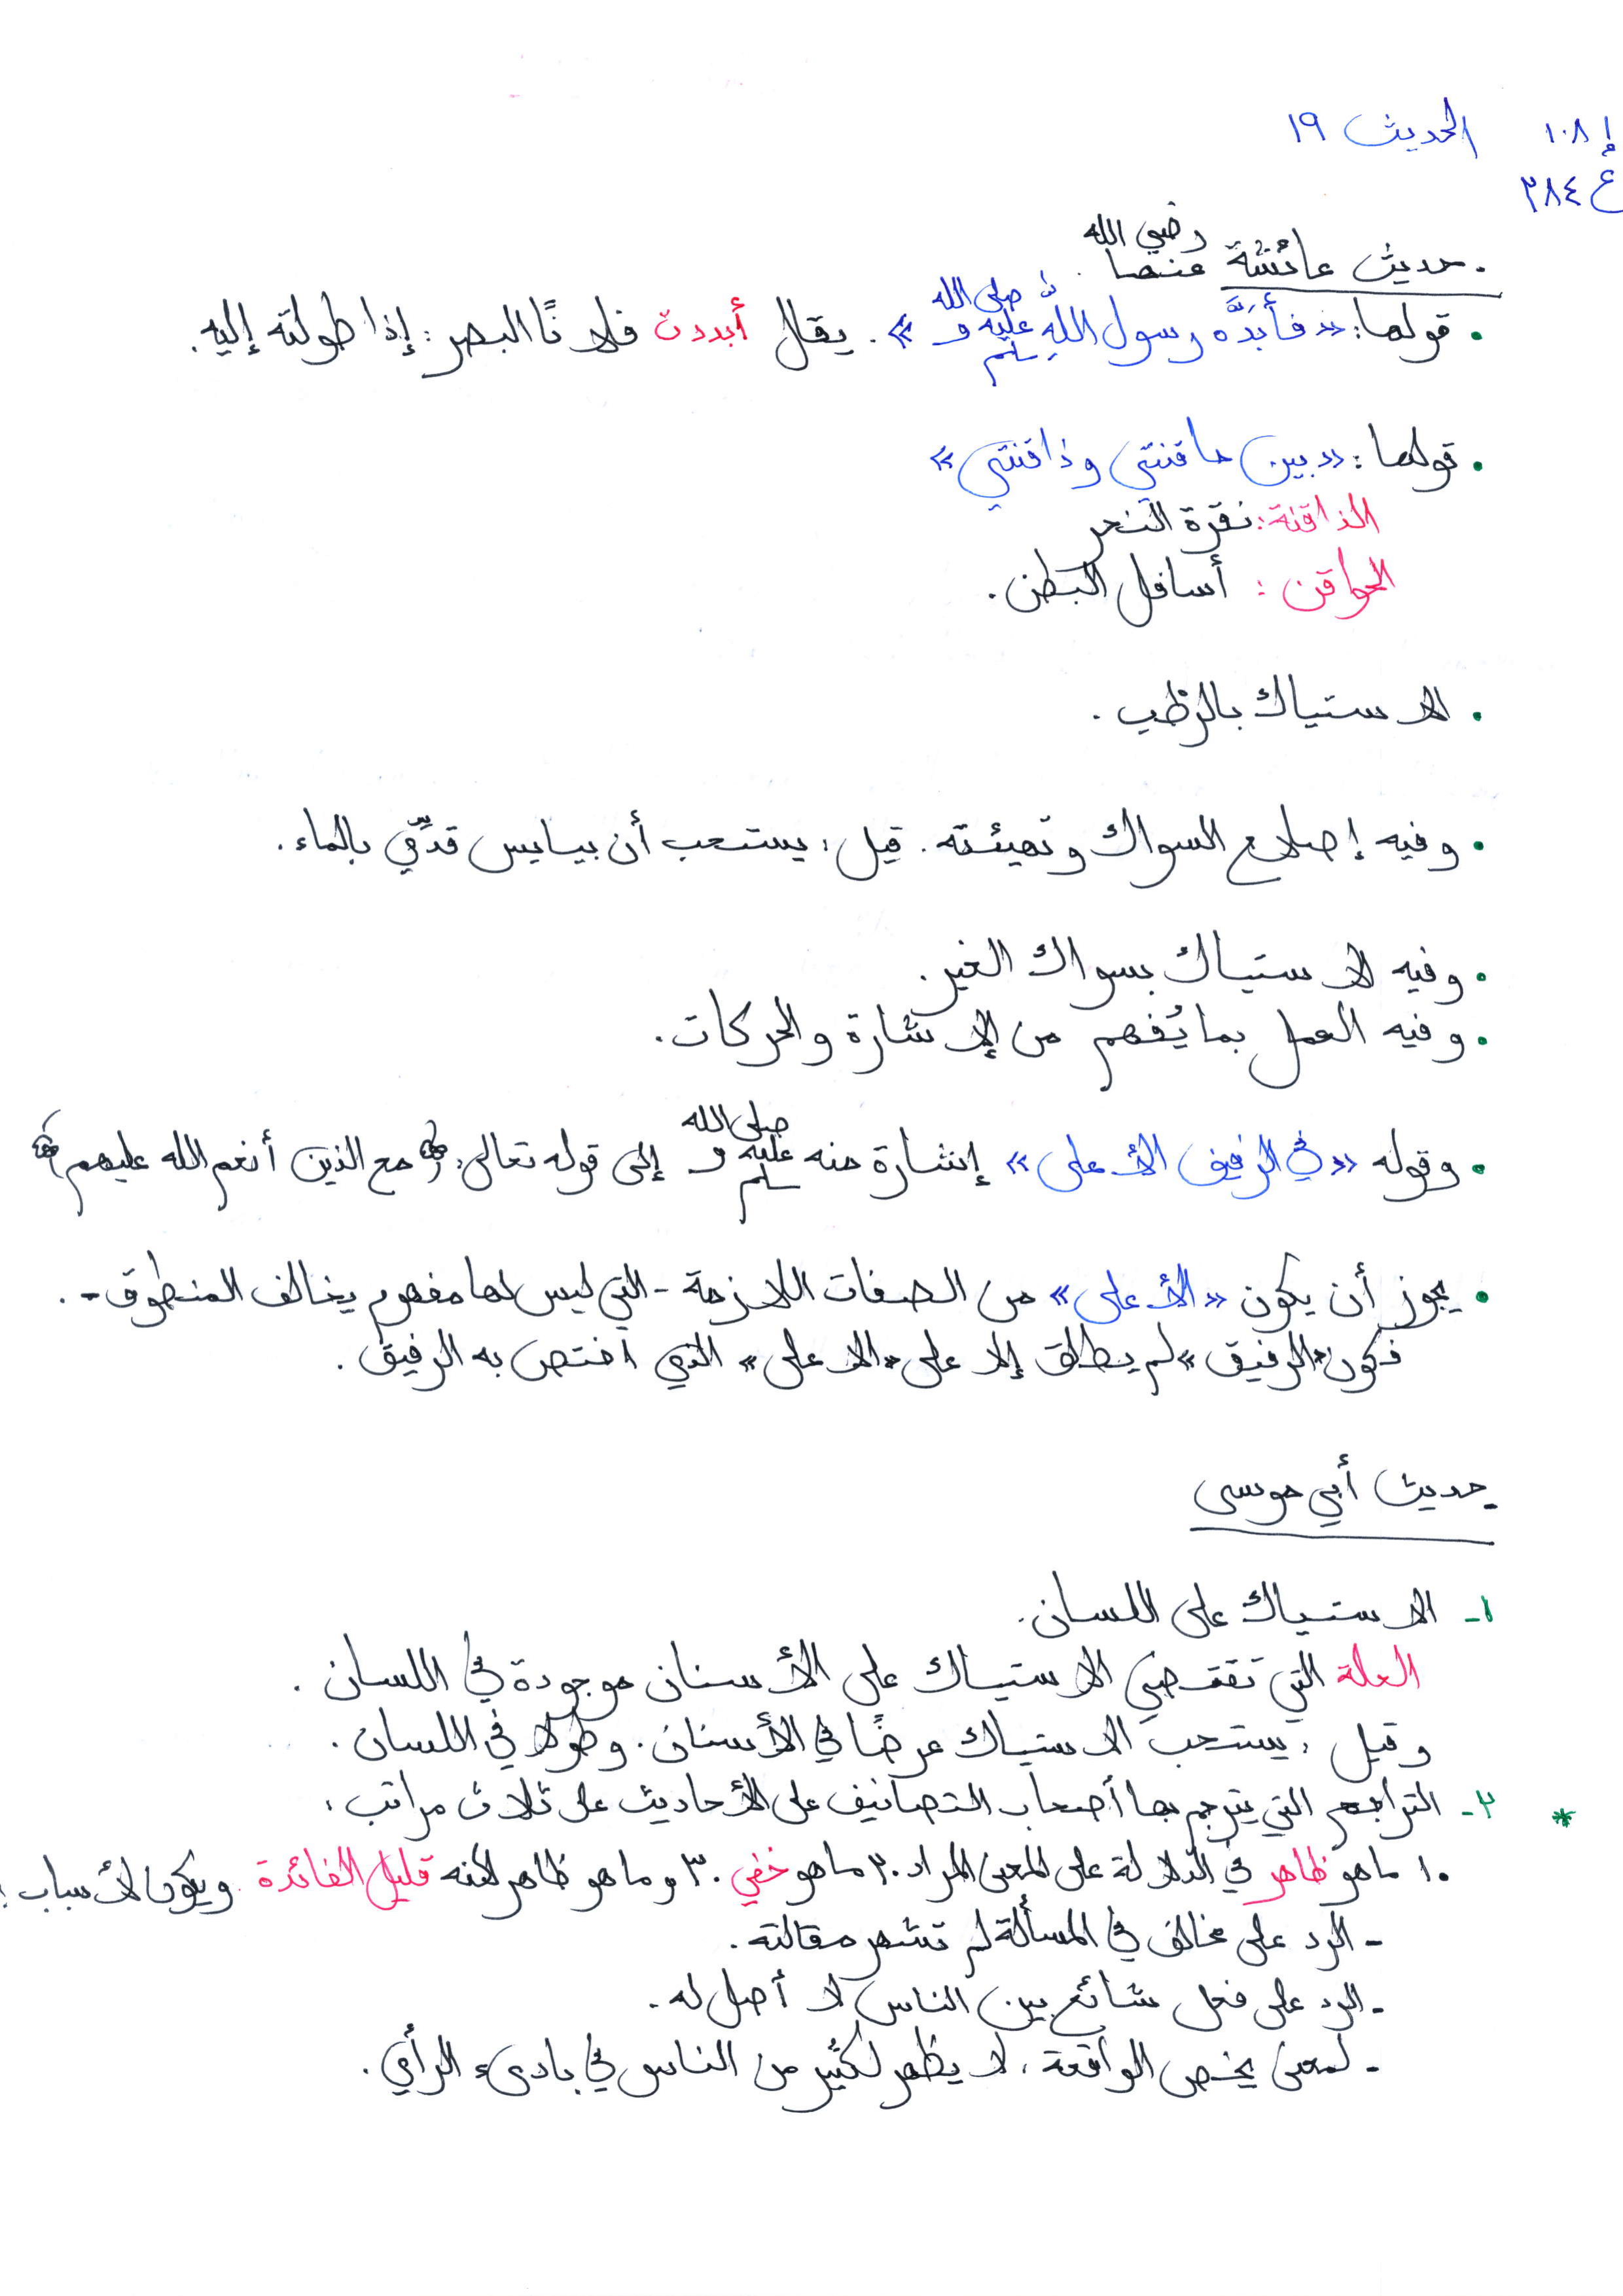 إ ١٠٨ الحديث ١٩
ع ٢٨٤
- حديث عائشة رضي الله عنها.
• قولها: «فأبَدَّه رسول الله صلى الله عليه وسلم». يقال أبددت فلانًا البصر: إذا طولته إليه.
• قولها: «بين حاقنتي وذاقنتي»
الذاقنة: نقرة النحر
الحواقن: أسافل البطن.
• الاستياك بالرطب.
• وفيه إصلاح السواك وتهيئته. قيل: يستحب أن بيابس نُدِّي بالماء.
• وفيه الاستياك بسواك الغير.
• وفيه العمل بما يُفهم من الإشارة والحركات.
• وقوله «في الرفيق الأعلى» إشارة منه صلى الله عليه وسلم إلى قوله تعالى: ﴿مع الذين أنعم الله عليهم﴾
• يجوز أن يكون «الأعلى» من الصفات اللازمة - التي ليس لها مفهوم يخالف المنطوق -.
فكون «الرفيق» لم يطلق إلا على «الأعلى» الذي اختص به الرفيق.
- حديث أبي موسى
١- الاستياك على اللسان.
العلة التي تقتضي الاستياك على الأسنان موجودة في اللسان.
وقيل: يستحب الاستياك عرضًا في الأسنان. وطولا في اللسان.
* ٢- التراجم التي يترجم بها أصحاب التصانيف على الأحاديث على ثلاث مراتب:
١. ما هو ظاهر في الدلالة على المعنى المراد. ٢. ما هو خفي. ٣. وما هو ظاهر لكنه قليل الفائدة. ويكون لأسباب:
- الرد على مخالف في المسألة لم تشهر مقالته.
- الرد على فعل شائع بين الناس لا أصل له.
- لمعنى يخص الواقعة، لا يظهر لكثير من الناس في بادىء الرأي.